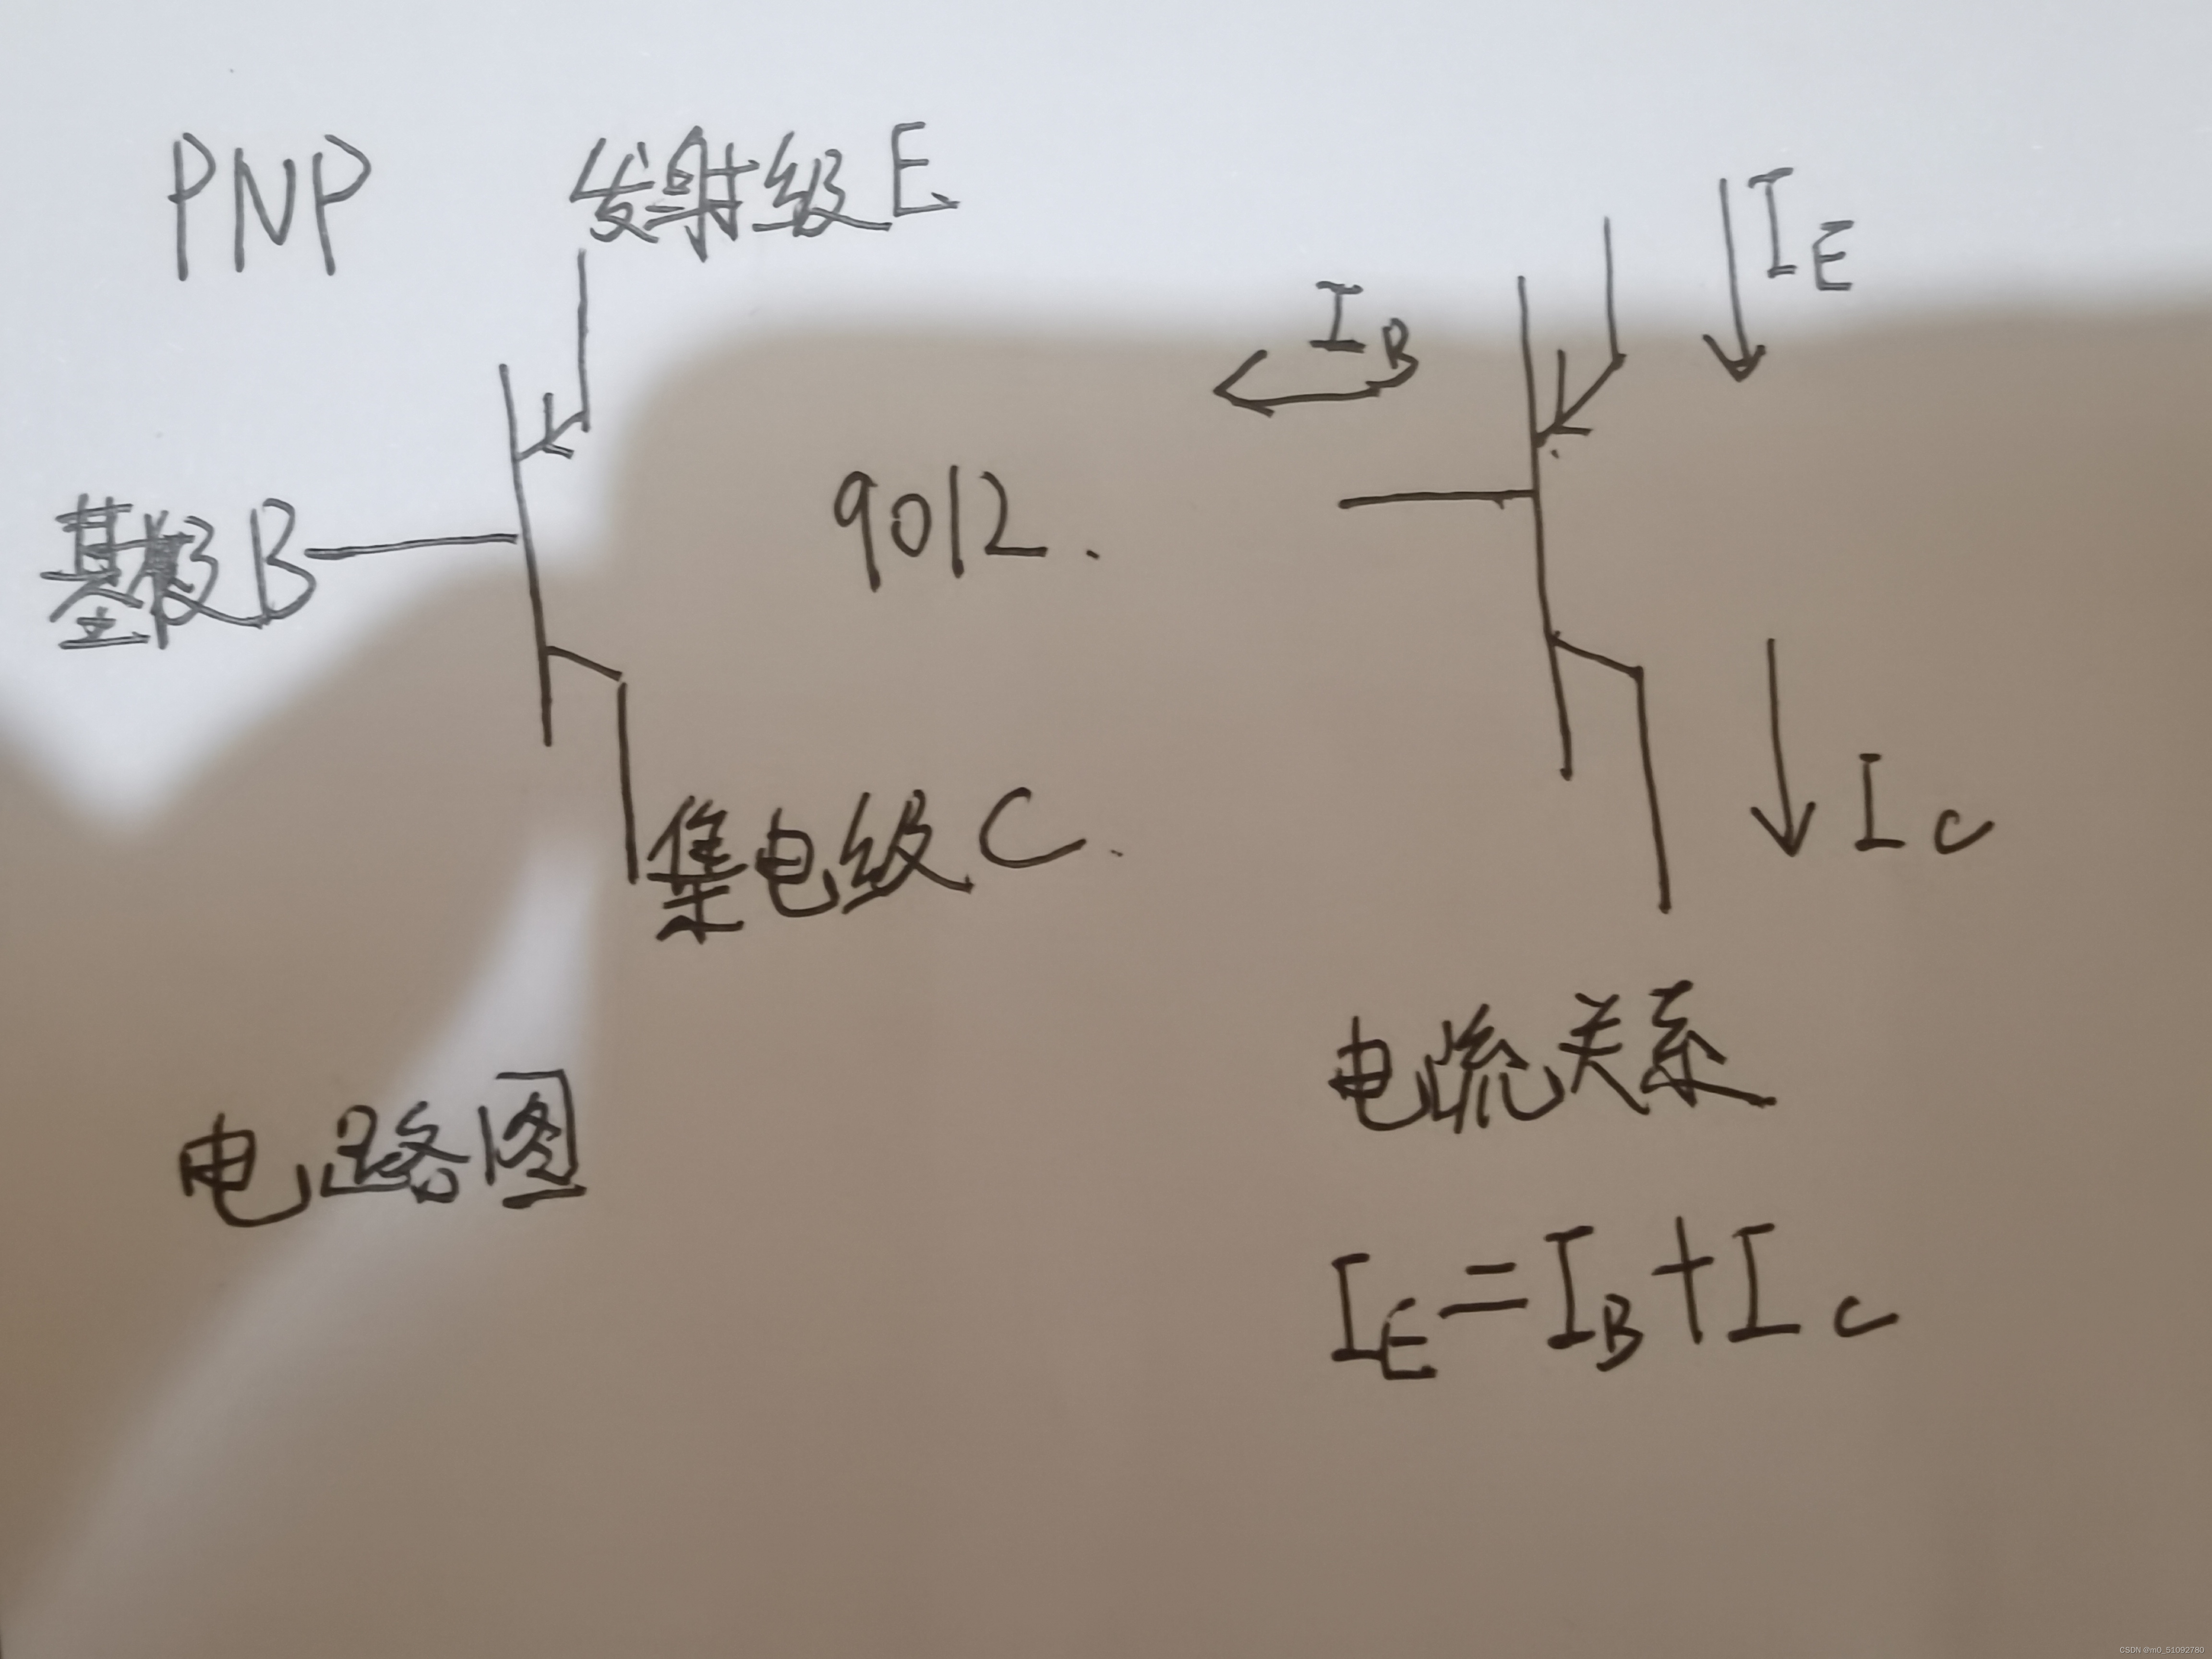 PNP
发射级E
I_E
I_B
基极B
9012.
集电级C.
I_C
电流关系
电路图
I_E=I_B+I_C
CSDN @m0_51092780